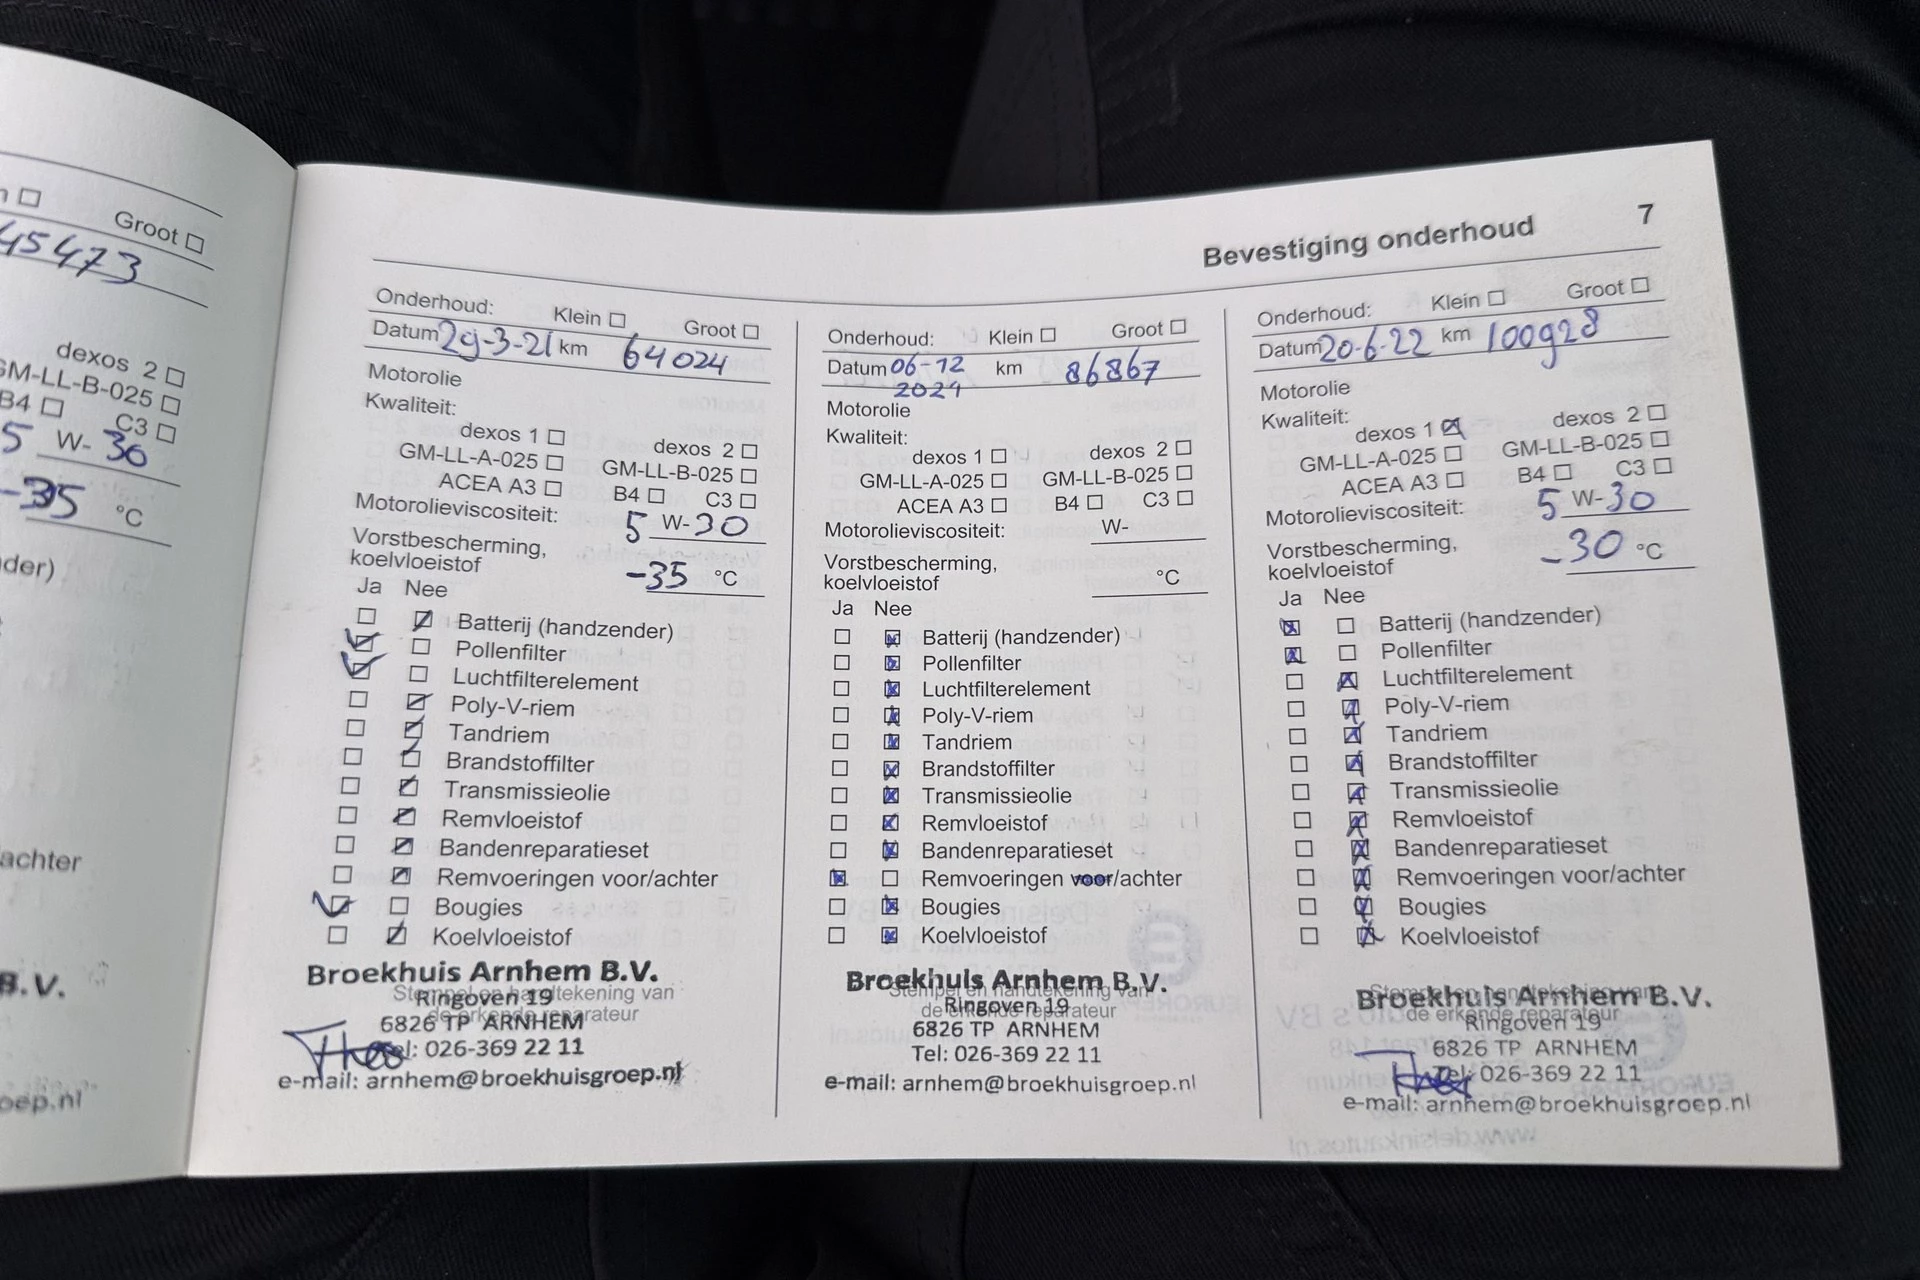 Groot ☐
45473
dexos 2 ☐
GM-LL-B-025 ☐
B4 ☐ C3 ☐
5 W- 30
-35 °C
achter
B.V.
oep.nl
Bevestiging onderhoud 7
Onderhoud: Klein ☐ Groot ☐
Datum 29-3-21 km 64024
Motorolie
Kwaliteit:
dexos 1 ☐ dexos 2 ☐
GM-LL-A-025 ☐ GM-LL-B-025 ☐
ACEA A3 ☐ B4 ☐ C3 ☐
Motorolieviscositeit: 5 W- 30
Vorstbescherming,
koelvloeistof -35 °C
Ja Nee
☐ ☑ Batterij (handzender)
☑ ☐ Pollenfilter
☑ ☐ Luchtfilterelement
☐ ☑ Poly-V-riem
☐ ☑ Tandriem
☐ ☑ Brandstoffilter
☐ ☑ Transmissieolie
☐ ☑ Remvloeistof
☐ ☑ Bandenreparatieset
☐ ☑ Remvoeringen voor/achter
☑ ☐ Bougies
☐ ☑ Koelvloeistof
Broekhuis Arnhem B.V.
Stempel en handtekening van
Ringoven 19
de erkende reparateur
6826 TP ARNHEM
Tel: 026-369 22 11
e-mail: arnhem@broekhuisgroep.nl
Onderhoud: Klein ☐ Groot ☐
Datum 06-12 km 86867
2021
Motorolie
Kwaliteit:
dexos 1 ☐ dexos 2 ☐
GM-LL-A-025 ☐ GM-LL-B-025 ☐
ACEA A3 ☐ B4 ☐ C3 ☐
Motorolieviscositeit: W-
Vorstbescherming,
koelvloeistof °C
Ja Nee
☐ ☒ Batterij (handzender)
☐ ☒ Pollenfilter
☐ ☒ Luchtfilterelement
☐ ☒ Poly-V-riem
☐ ☒ Tandriem
☐ ☒ Brandstoffilter
☐ ☒ Transmissieolie
☐ ☒ Remvloeistof
☐ ☒ Bandenreparatieset
☒ ☐ Remvoeringen voor/achter
☐ ☒ Bougies
☐ ☒ Koelvloeistof
Broekhuis Arnhem B.V.
Stempel en handtekening van
Ringoven 19
de erkende reparateur
6826 TP ARNHEM
Tel: 026-369 22 11
e-mail: arnhem@broekhuisgroep.nl
Onderhoud: Klein ☐ Groot ☐
Datum 20-6-22 km 100928
Motorolie
Kwaliteit:
dexos 1 ☒ dexos 2 ☐
GM-LL-A-025 ☐ GM-LL-B-025 ☐
ACEA A3 ☐ B4 ☐ C3 ☐
Motorolieviscositeit: 5 W- 30
Vorstbescherming,
koelvloeistof -30 °C
Ja Nee
☒ ☐ Batterij (handzender)
☒ ☐ Pollenfilter
☐ ☒ Luchtfilterelement
☐ ☒ Poly-V-riem
☐ ☒ Tandriem
☐ ☒ Brandstoffilter
☐ ☒ Transmissieolie
☐ ☒ Remvloeistof
☐ ☒ Bandenreparatieset
☐ ☒ Remvoeringen voor/achter
☐ ☒ Bougies
☐ ☒ Koelvloeistof
Stempel en handtekening van
Broekhuis Arnhem B.V.
de erkende reparateur
Ringoven 19
6826 TP ARNHEM
Tel: 026-369 22 11
e-mail: arnhem@broekhuisgroep.nl